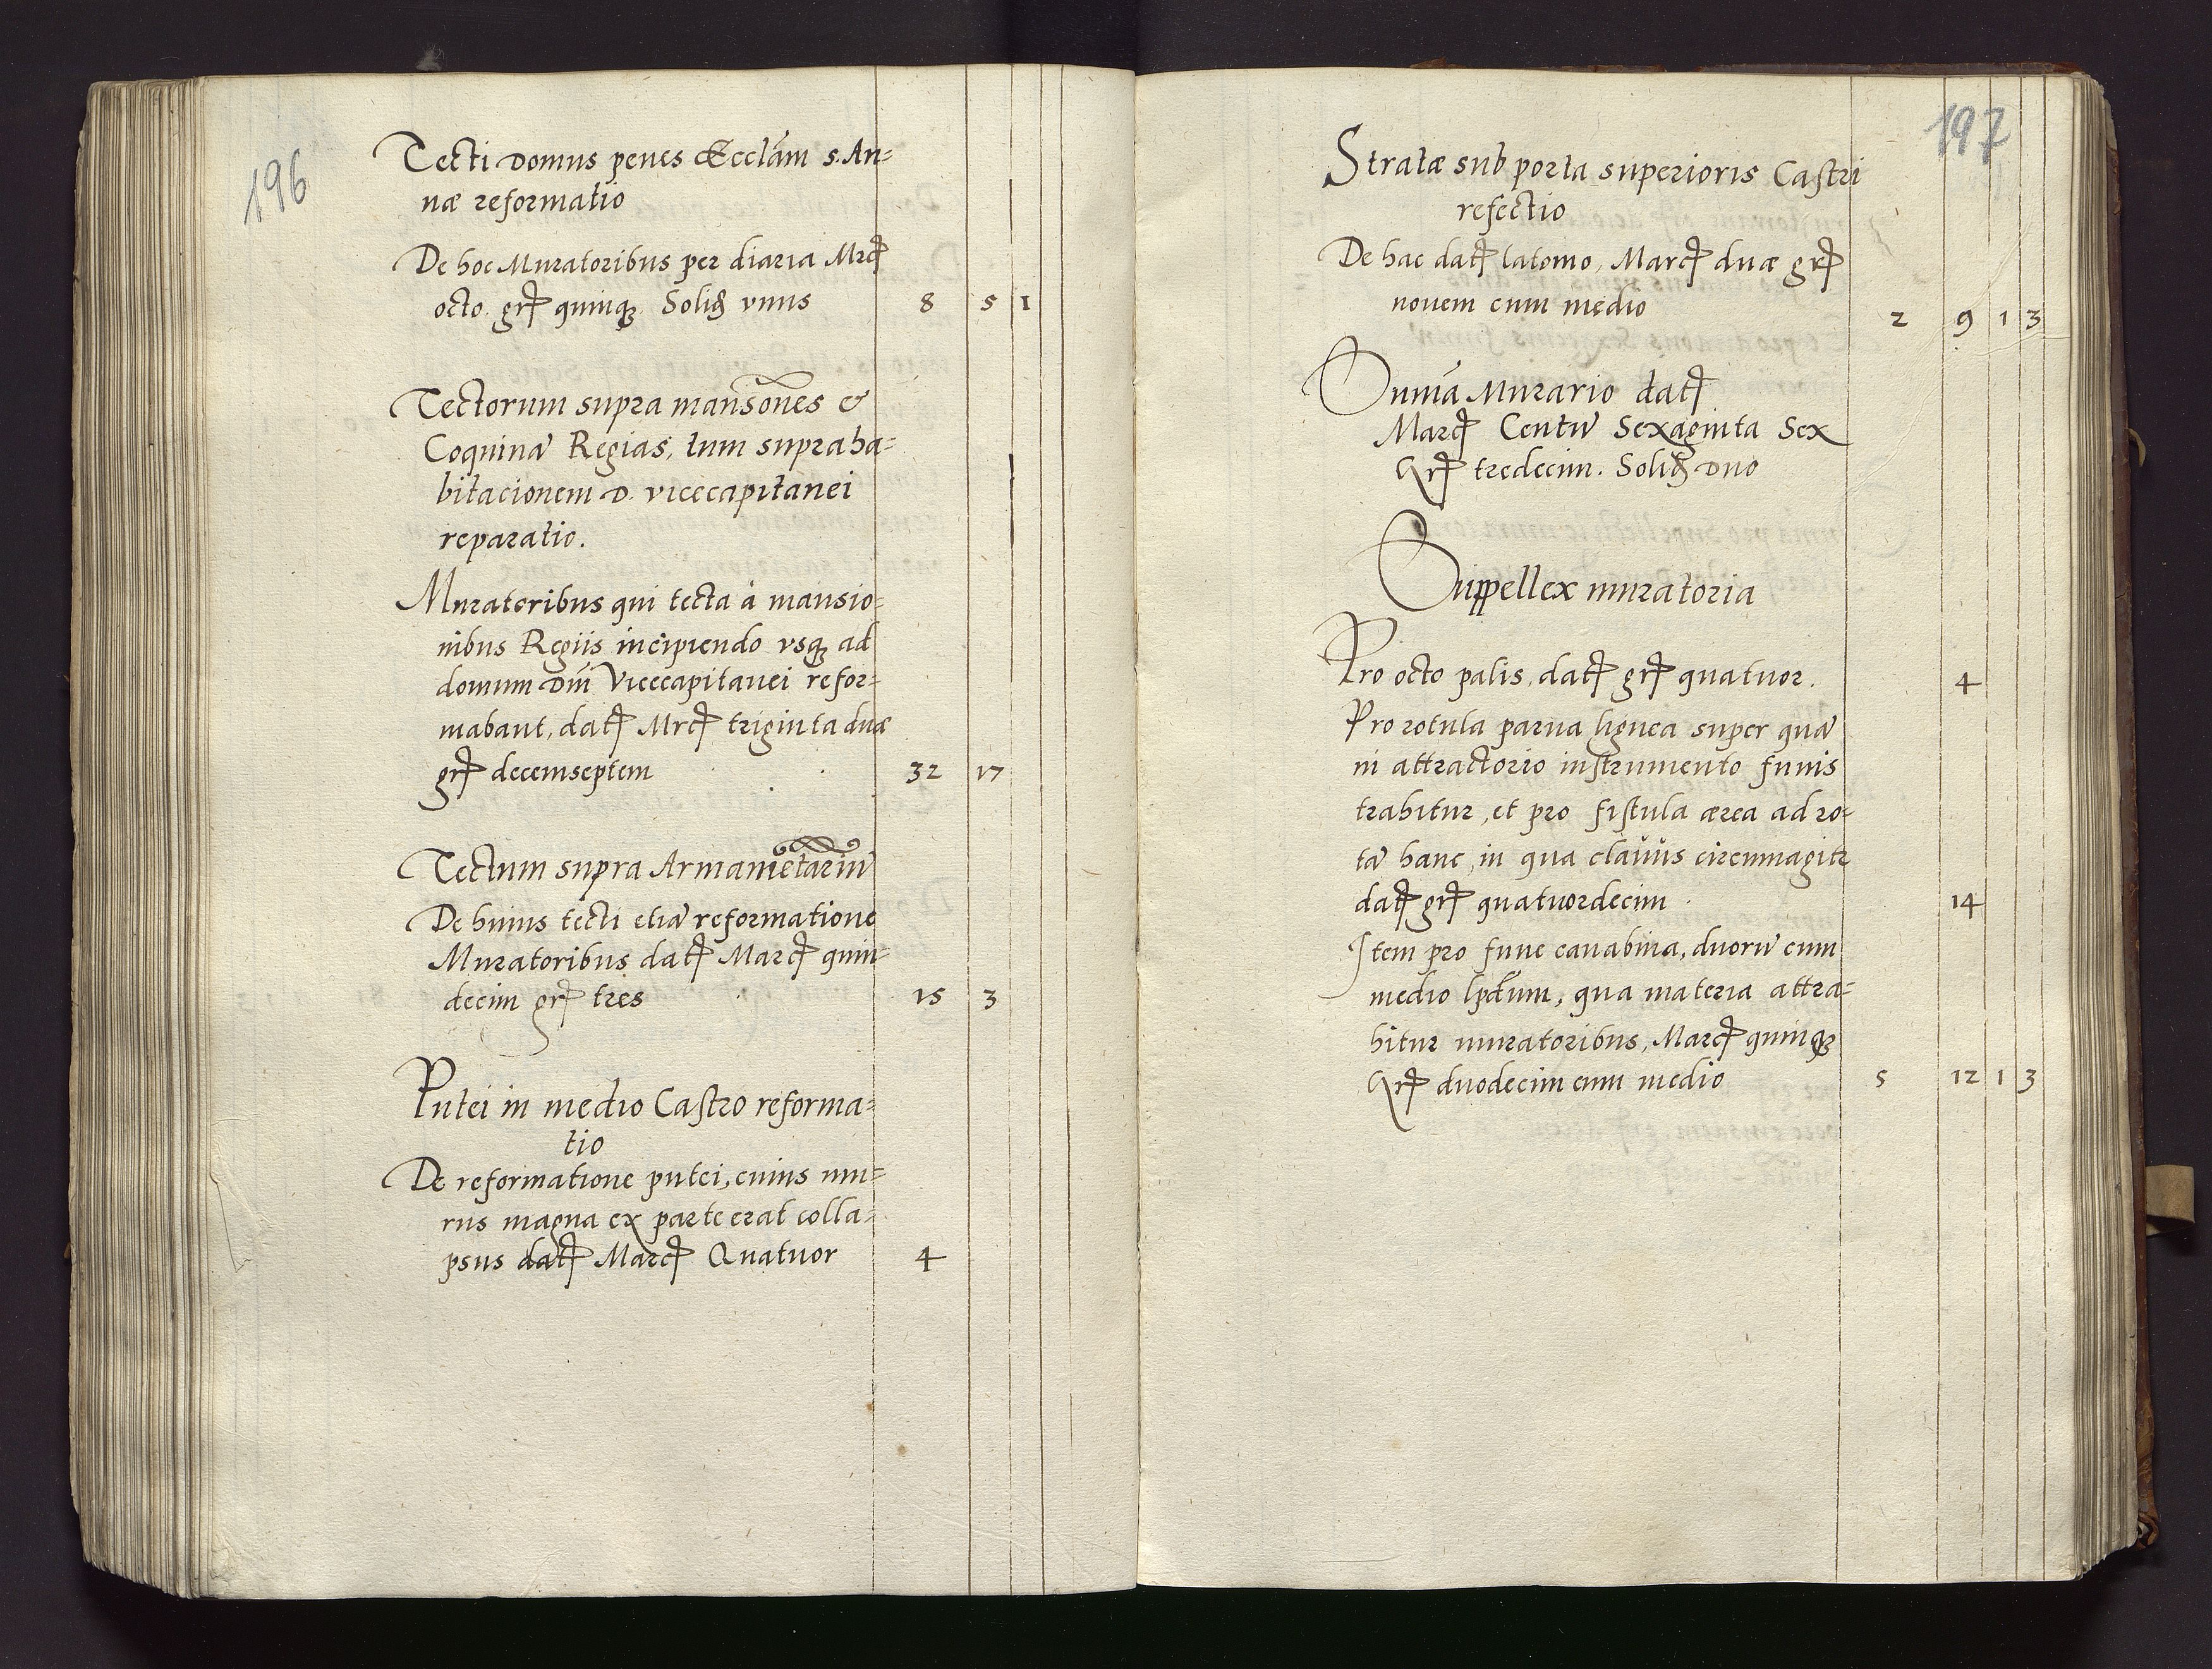 196
Tecti Domus penes Eccl̃am S. An=
næ reformatio
De hoc Muratoribus per diaria Mrc̃
octo. gr̃ quinq̃ Solid̃ vnus 8 5 1
Tectorum supra mansiones &
Coquinã Regias, tum supra ha=
bitacionem D. vicecapitanei
reparatio.
Muratoribus qui tecta à mansio=
nibus Regiis incipiendo vsq̃ ad
domum Dñi Vicecapitanei refor=
mabant, dat̃ Mrc̃ triginta duæ
gr̃ decemseptem 32 17
Tectum supra Armamẽtariũ
De huius tecti etiã reformatione
Muratoribus dat̃ Marc̃ quin=
decim gr̃ tres 15 3
Putei in medio Castro reforma=
tio
De reformatione putei, cuius mu=
rus magna ex parte erat colla=
psus dat̃ Marc̃ Quatuor 4
197
Stratæ sub porta superioris Castri
refectio
De hac dat̃ latomo, Marc̃ duæ gr̃
nouem cum medio 2 9 1 3
Sum̃a Murario dat̃
Marc̃ Centũ Sexaginta Sex
Gr̃ tredecim. Solid̃ Duo
Suppellex muratoria
Pro octo palis, dat̃ gr̃ quatuor. 4
Pro rotula parua lignea super quã
in attractorio instrumento funis
trahitur, et pro fistula ærea ad ro=
tã hanc, in qua clauus circumagitr
dat̃ gr̃ quatuordecim 14
Item pro fune canabina, duorũ cum
medio lpd̃um, qua materia attra=
hitur muratoribus, Marc̃ quinq̃
Gr̃ duodecim cum medio 5 12 1 3